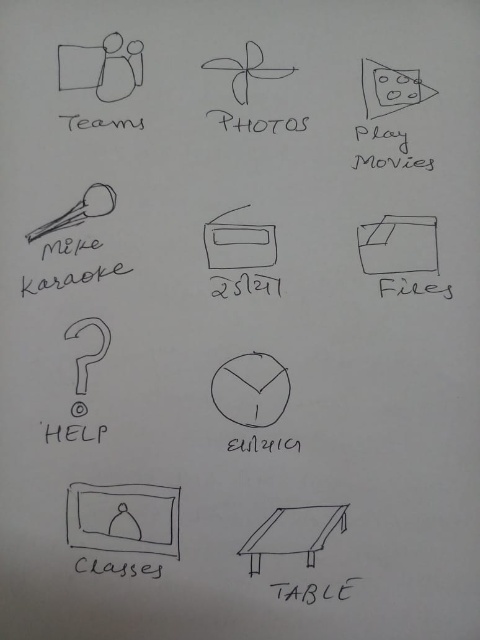 Teams
PHOTOS
Play
Movies
Mike
Karaoke
રેડીયો
Files
HELP
ઘડીયાળ
Classes
TABLE